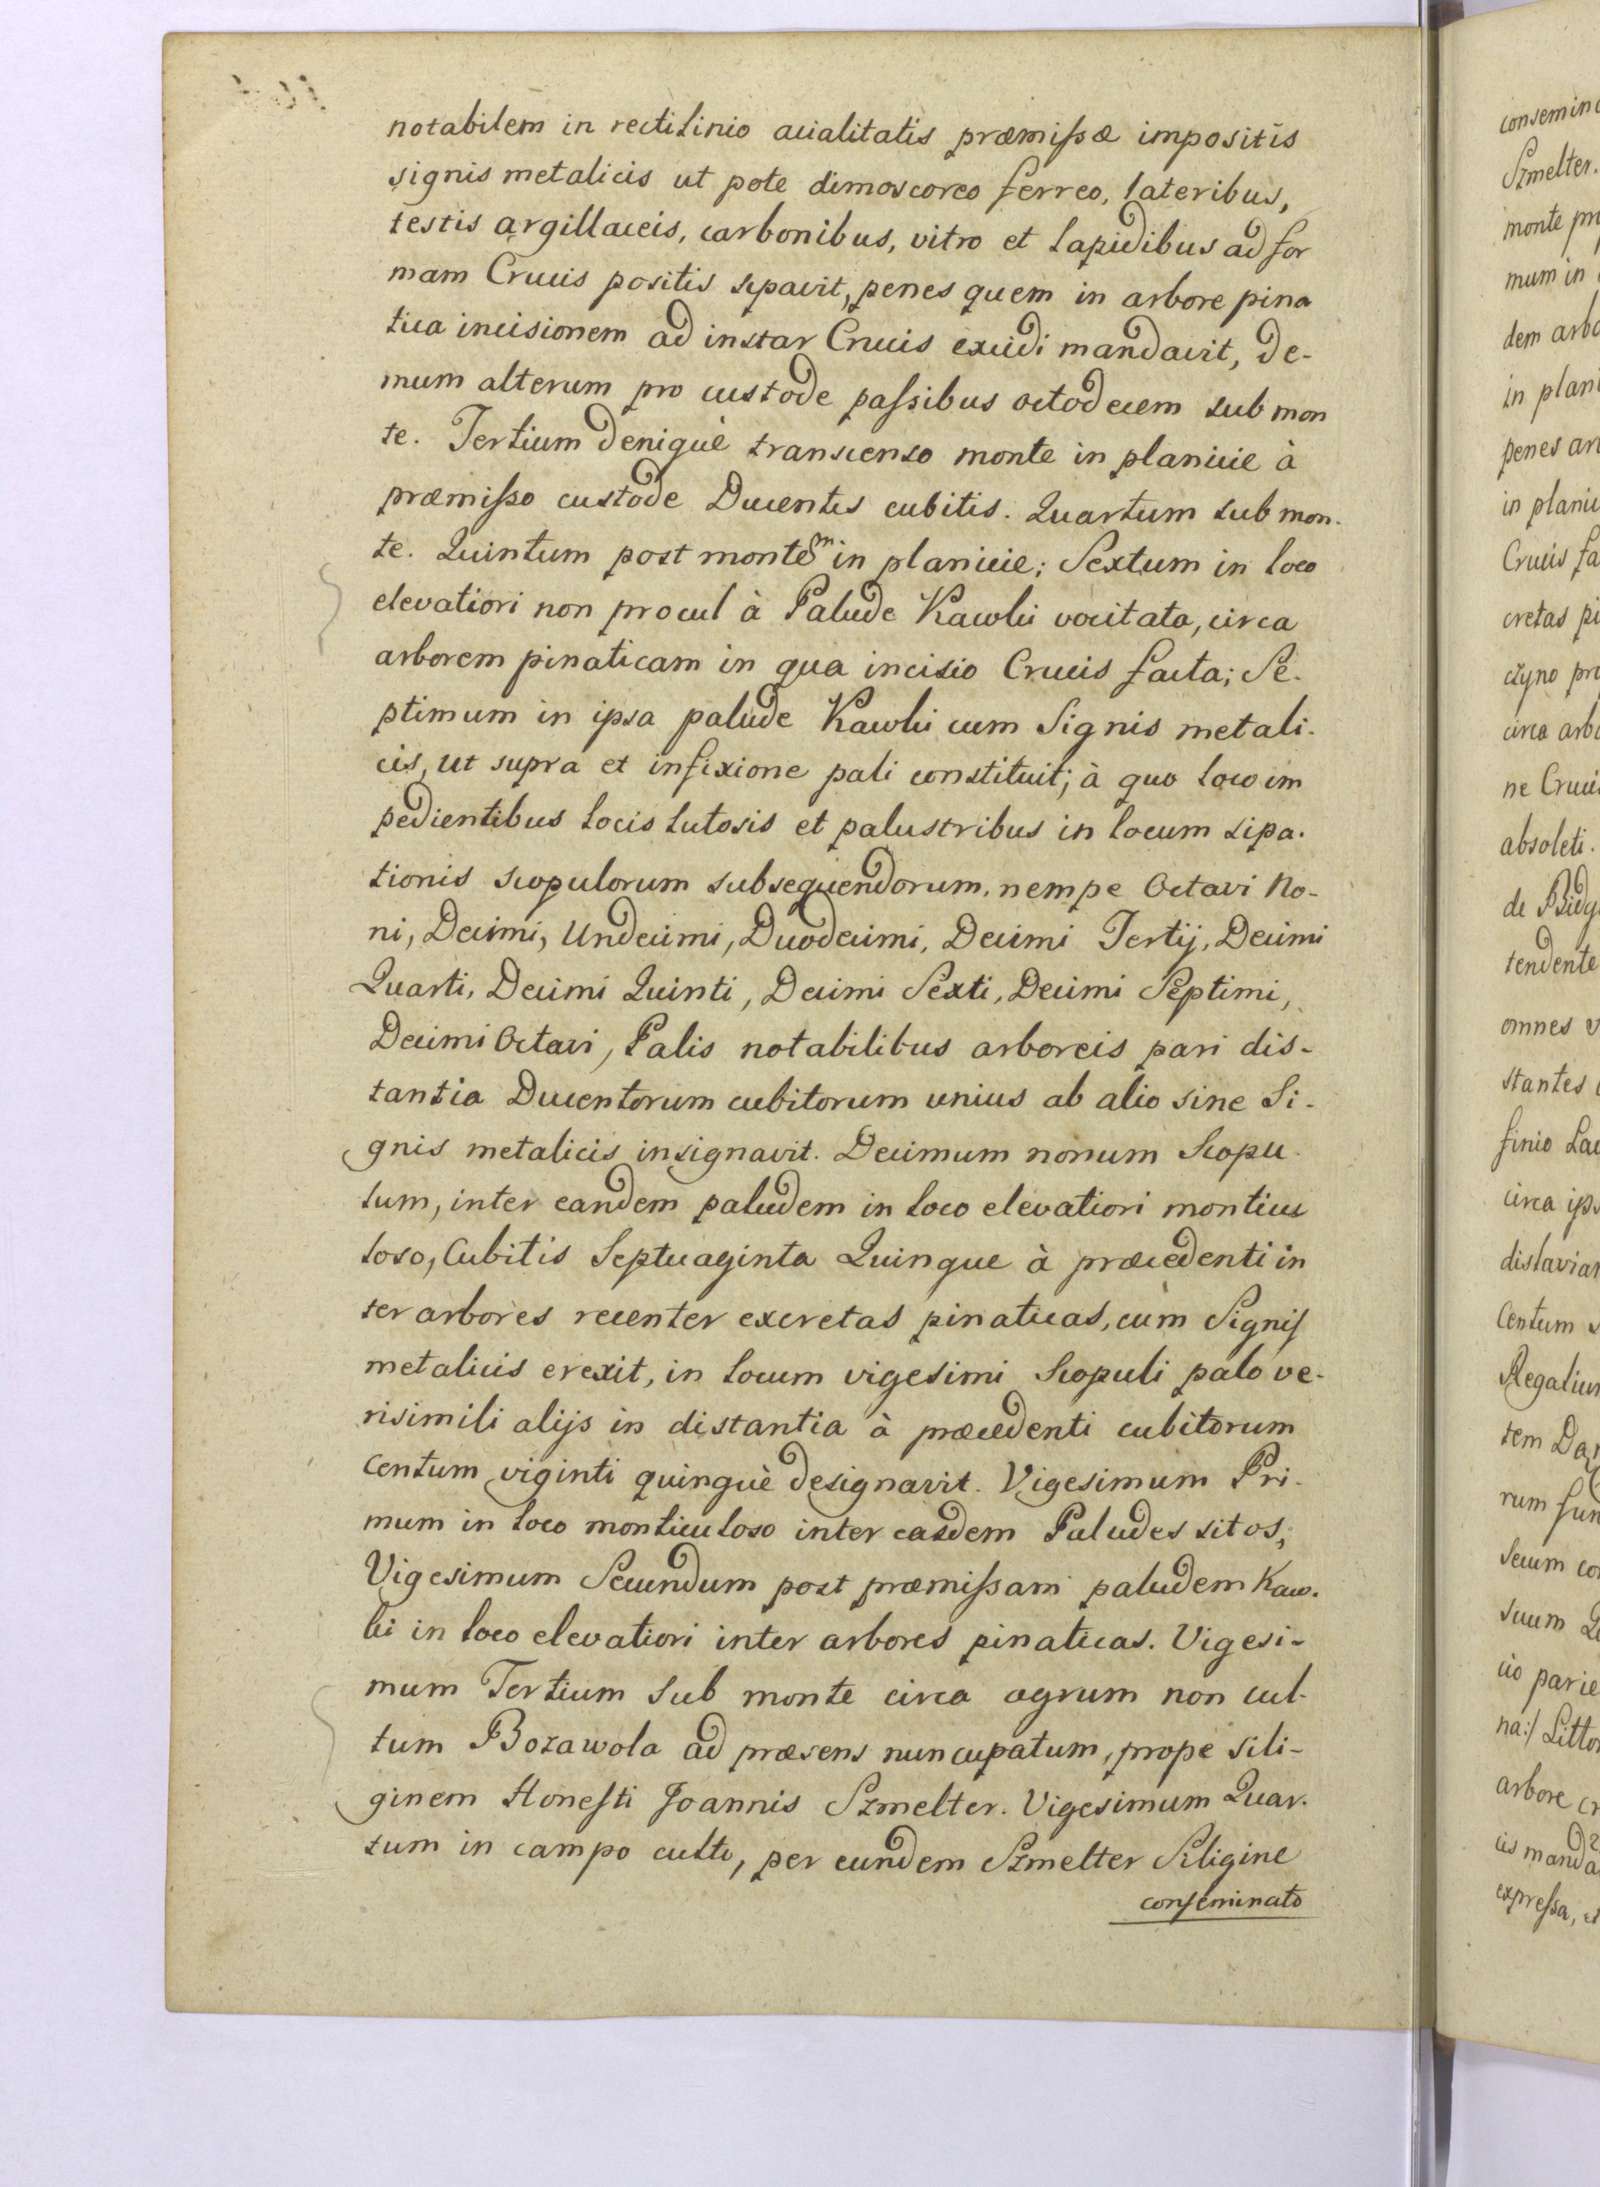 notabilem in rectilinio acialitatis præmissæ impositis
signis metalicis ut pote dimoscoreo ferreo, lateribus,
testis argillaceis, carbonibus, vitro et lapidibus ad for
mam Crucis positis sipavit, penes quem in arbore pina
tica incisionem ad instar Crucis excidi mandavit, De-
mum alterum pro custode passibus octodecem sub mon
te. Tertium deniquè transcenso monte in planicie à
præmisso custode Ducentis cubitis. Quartum sub mon-
te. Quintum post montem in planicie; Sextum in loco
elevatiori non procul à Palude Kawlii vocitata, circa
arborem pinaticam in qua incisio Crucis facta; Se-
ptimum in ipsa palude Kawlii cum Signis metali-
cis, ut supra et infixione pali constituit; à quo loco im
pedientibus locis lutosis et palustribus in locum sipa-
tionis scopulorum subsequendorum, nempe Octavi No-
ni, Decimi, Undecimi, Duodecimi, Decimi Tertij, Decimi
Quarti, Decimi Quinti, Decimi Sexti, Decimi Septimi,
Decimi Octavi, Palis notabilibus arboreis pari dis-
tantia Ducentorum cubitorum unius ab alio sine Si-
gnis metalicis insignavit. Decimum nonum Scopu
lum, inter eandem paludem in loco elevatiori monticu
loso, Cubitis Septuaginta Quinque à præcedenti in
ter arbores recenter excretas pinaticas, cum Signis
metalicis erexit, in locum vigesimi Scopuli palo ve-
risimili alijs in distantia à præcedenti cubitorum
centum viginti quinquè designavit. Vigesimum Pri-
mum in loco monticuloso inter easdem Paludes sitos,
Vigesimum Secundum post præmissam paludem Kaw-
lii in loco elevatiori inter arbores pinaticas. Vigesi-
mum Tertium Sub monte circa agrum non cul-
tum Bozawola ad præsens nuncupatum, prope sili-
ginem Honesti Joannis Szmelter. Vigesimum Quar-
tum in campo culto, per eundem Szmelter Siligine
conseminato
consemina
Szmelter.
monte
mum in
dem arbo
in plani
penes
in planic
Crucis fa
cretas pi
circa arbo
ne Crucis
absoleti.
de
tendente
omnes
stantes
finio
circa ips
Centum
Regalium
tem
rum
secum
suum
arbore
expressa,